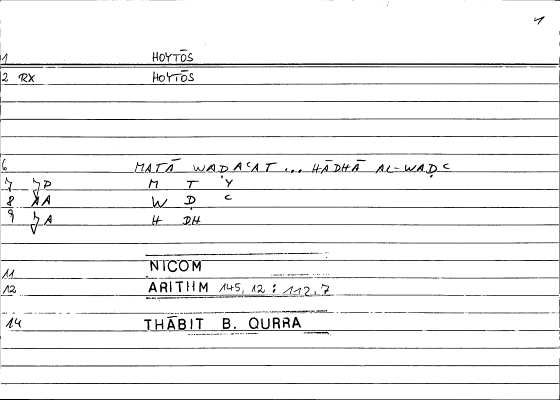 1 HOYTŌS
2 RX HOYTŌS
6 MATĀ WAḌAʿAT ... HĀDHĀ AL-WAḌʿ
7 JP M T Y
8 AA W Ḍ ʿ
9 JA H DH
11 NICOM
12 ARITHM 145,12 : 112,7
14 THĀBIT B. QURRA